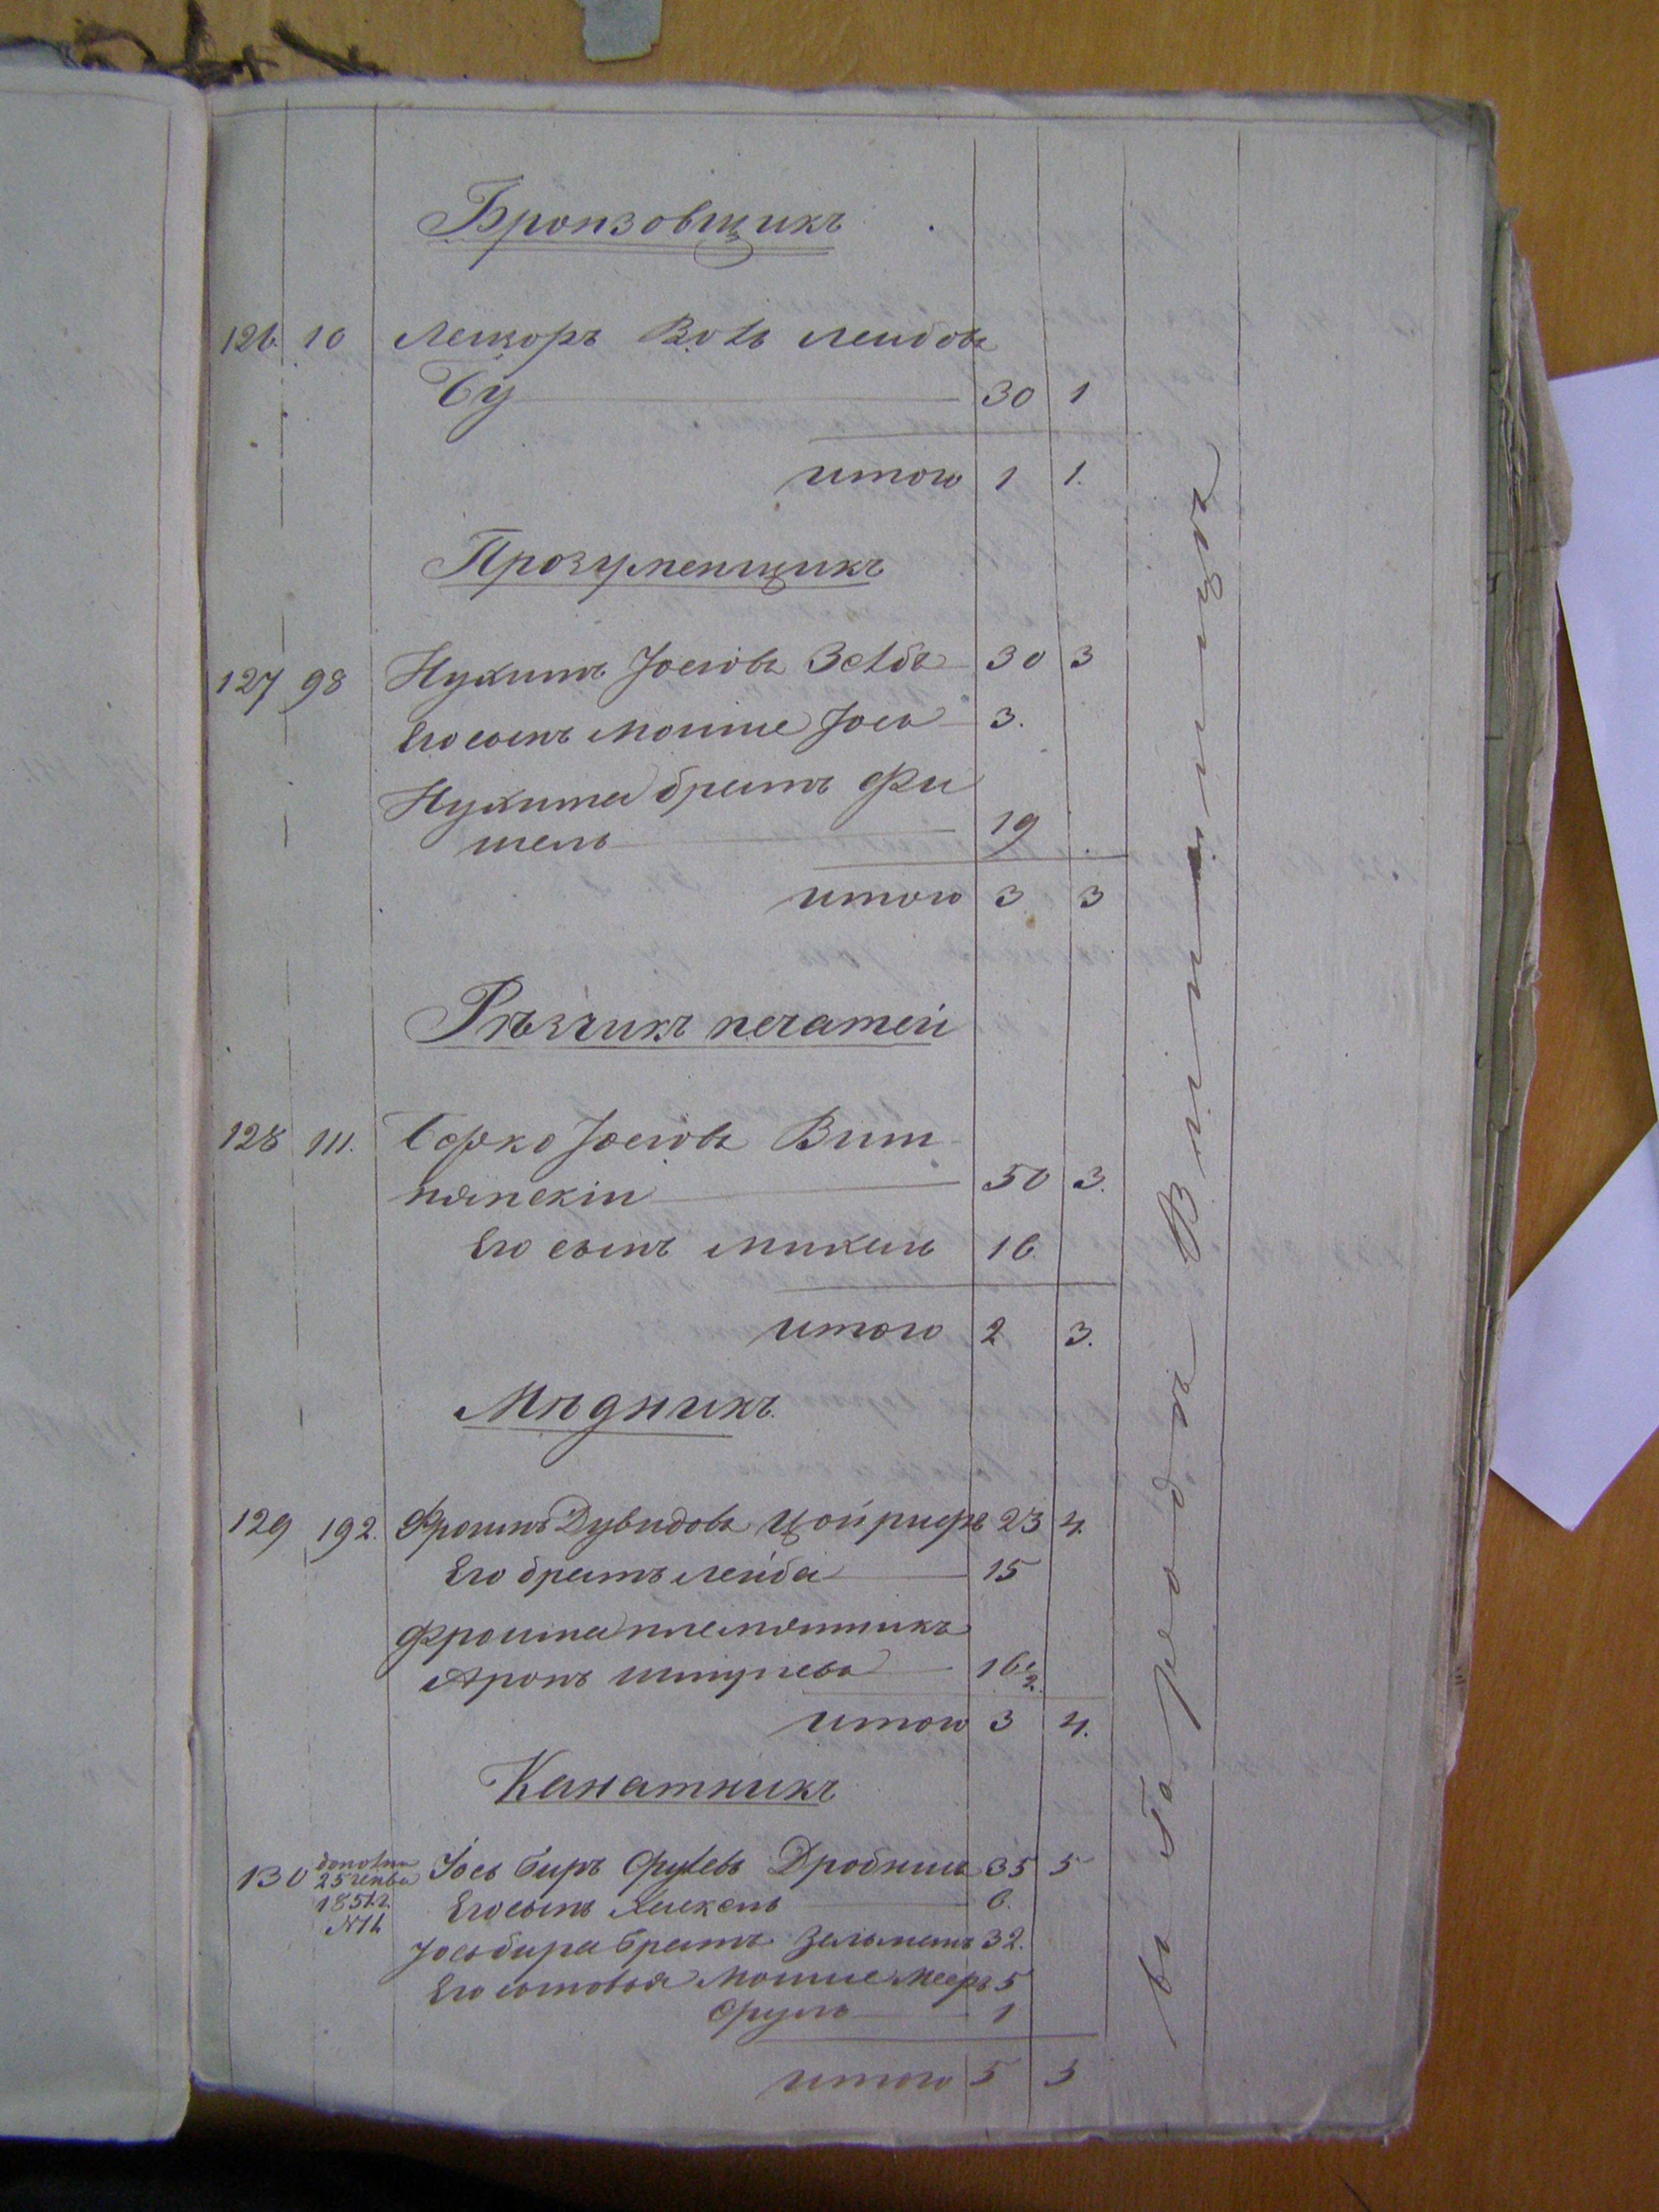 Бронзовщикъ
126. 10 Лейзоръ Вольѳ Лейбовъ
Бу 30 1
итого 1 1.
Прозуменщикъ
127 98 Нухимъ Іосіовъ Зельбъ 30 3
Его сынъ Мошше Іось 3.
Нухима братъ Фи
шель 19
итого 3 3
Рѣзчикъ печатей
128 111. Берко Іосіовъ Вит
нянскій 50 3.
Его сынъ Михель 16.
итого 2 3.
Мѣдникъ
129 192. Фроимъ Дувидовъ Цойрифъ 23 4.
Его братъ Лейба 15
Фроима племянникъ
Аронъ 16 1/2
итого 3 4.
Канатникъ
130 Іось Беръ Срулевъ 35 5
25 генва
185
Его сынъ Хаскель 6.
№ 11
Іосьбера братъ Зельманъ 32.
Его сыновья Мошше Мееръ 5
Сруль 1
итого 5 5
въ городѣ